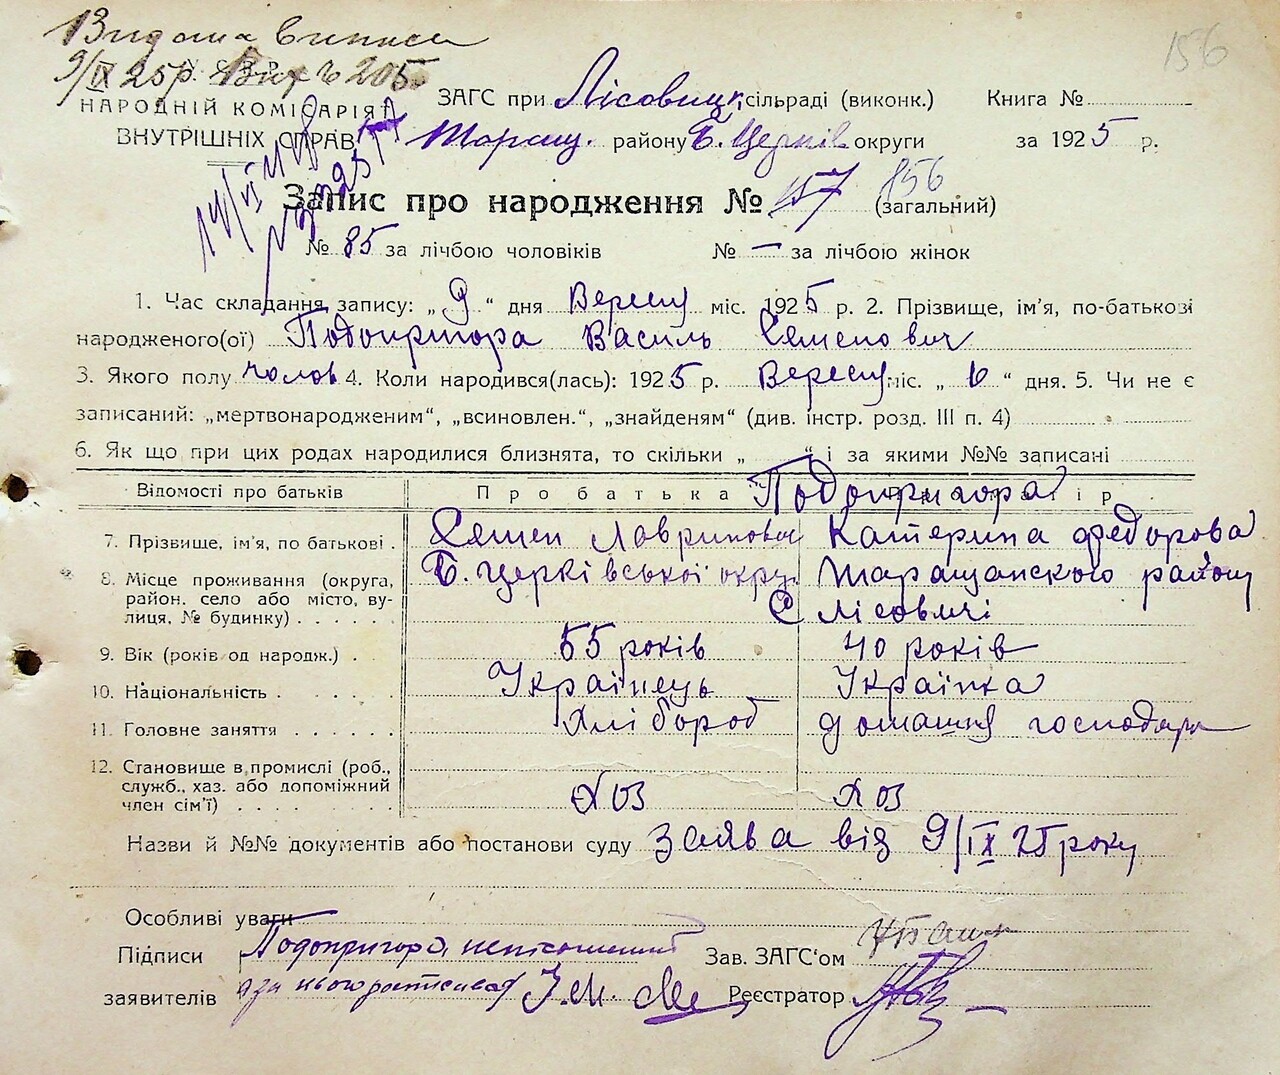 Видана виписи
9/IX 25 р. Вих № 205
156
У. С. Р. Р.
НАРОДНІЙ КОМІСАРІЯТ
ВНУТРІШНІХ СПРАВ
ЗАГС при Лісовицк. сільраді (виконк.) Книга №
Таращ. району Б. Церків округи за 1925 р.
Запис про народження № 157 856 (загальний)
14/VI
№ 85 за лічбою чоловіків № — за лічбою жінок
1. Час складання запису: „ 9 “ дня Вересня міс. 1925 р. 2. Прізвище, ім'я, по-батькові
народженого(ої) Подопригора Василь Семенович
3. Якого полу чолов 4. Коли народився(лась): 1925 р. Вересня міс. „ 6 “ дня. 5. Чи не є
записаний: „мертвонародженим“, „всиновлен.“, „знайденям“ (див. інстр. розд. III п. 4)
6. Як що при цих родах народилися близнята, то скільки „ — “ і за якими №№ записані
Відомості про батьків Про батька Подопригора
7. Прізвище, ім'я, по батькові . Семен Лавринович Катерина Федорова
8. Місце проживання (округа, район, село або місто, вулиця, № будинку) Б. Церківської окру. Таращанского району
С Лісовичі
9. Вік (років од народж.) . 55 років 40 років
10. Національність . Українець Українка
11. Головне заняття Хлібороб домашня господарк
12. Становище в промислі (роб., служб., хаз. або допоміжний член сім'ї) Хоз Хоз
Назви й №№ документів або постанови суду Заява від 9/IX 25 року
Особливі уваги —
Підписи Подопригора неписьменний Зав. ЗАГС'ом
заявителів а за нього розписавсь Реєстратор